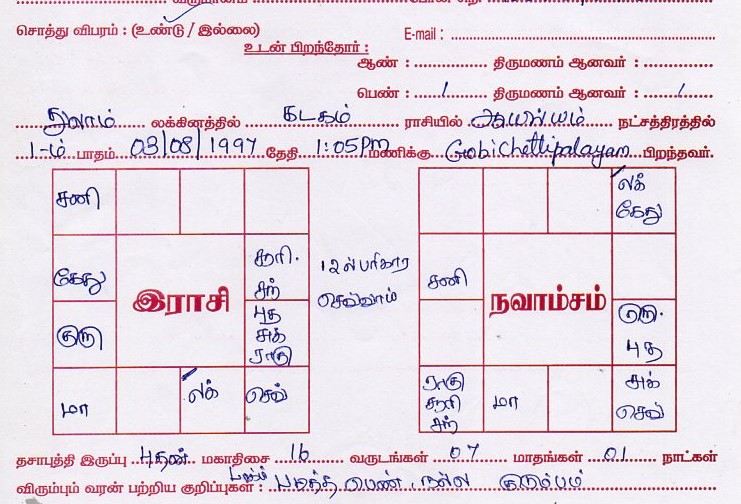 சொத்து விபரம் : (உண்டு / இல்லை) E-mail :
உடன் பிறந்தோர் :
ஆண் : திருமணம் ஆனவர் :
பெண் : 1 திருமணம் ஆனவர் : 1
துலாம் லக்கினத்தில் கடகம் ராசியில் ஆயில்யம் நட்சத்திரத்தில்
1-ம் பாதம் 03/08/1997 தேதி 1:05Pm மணிக்கு Gobichettipalayam பிறந்தவர்.
சனி
கேது
குரு
மா
இராசி
லக்
சூரி. சந்
புத சுக் ராகு
செவ்
12ல் பரிகார செவ்வாய்
லக் கேது
சனி
நவாம்சம்
குரு. புத
ராகு சூரி சந்
மா
சுக் செவ்
தசாபுத்தி இருப்பு புதன் மகாதிசை 16 வருடங்கள் 07 மாதங்கள் 01 நாட்கள்
விரும்பும் வரன் பற்றிய குறிப்புகள் : படித்த பெண், நல்ல குடும்பம்